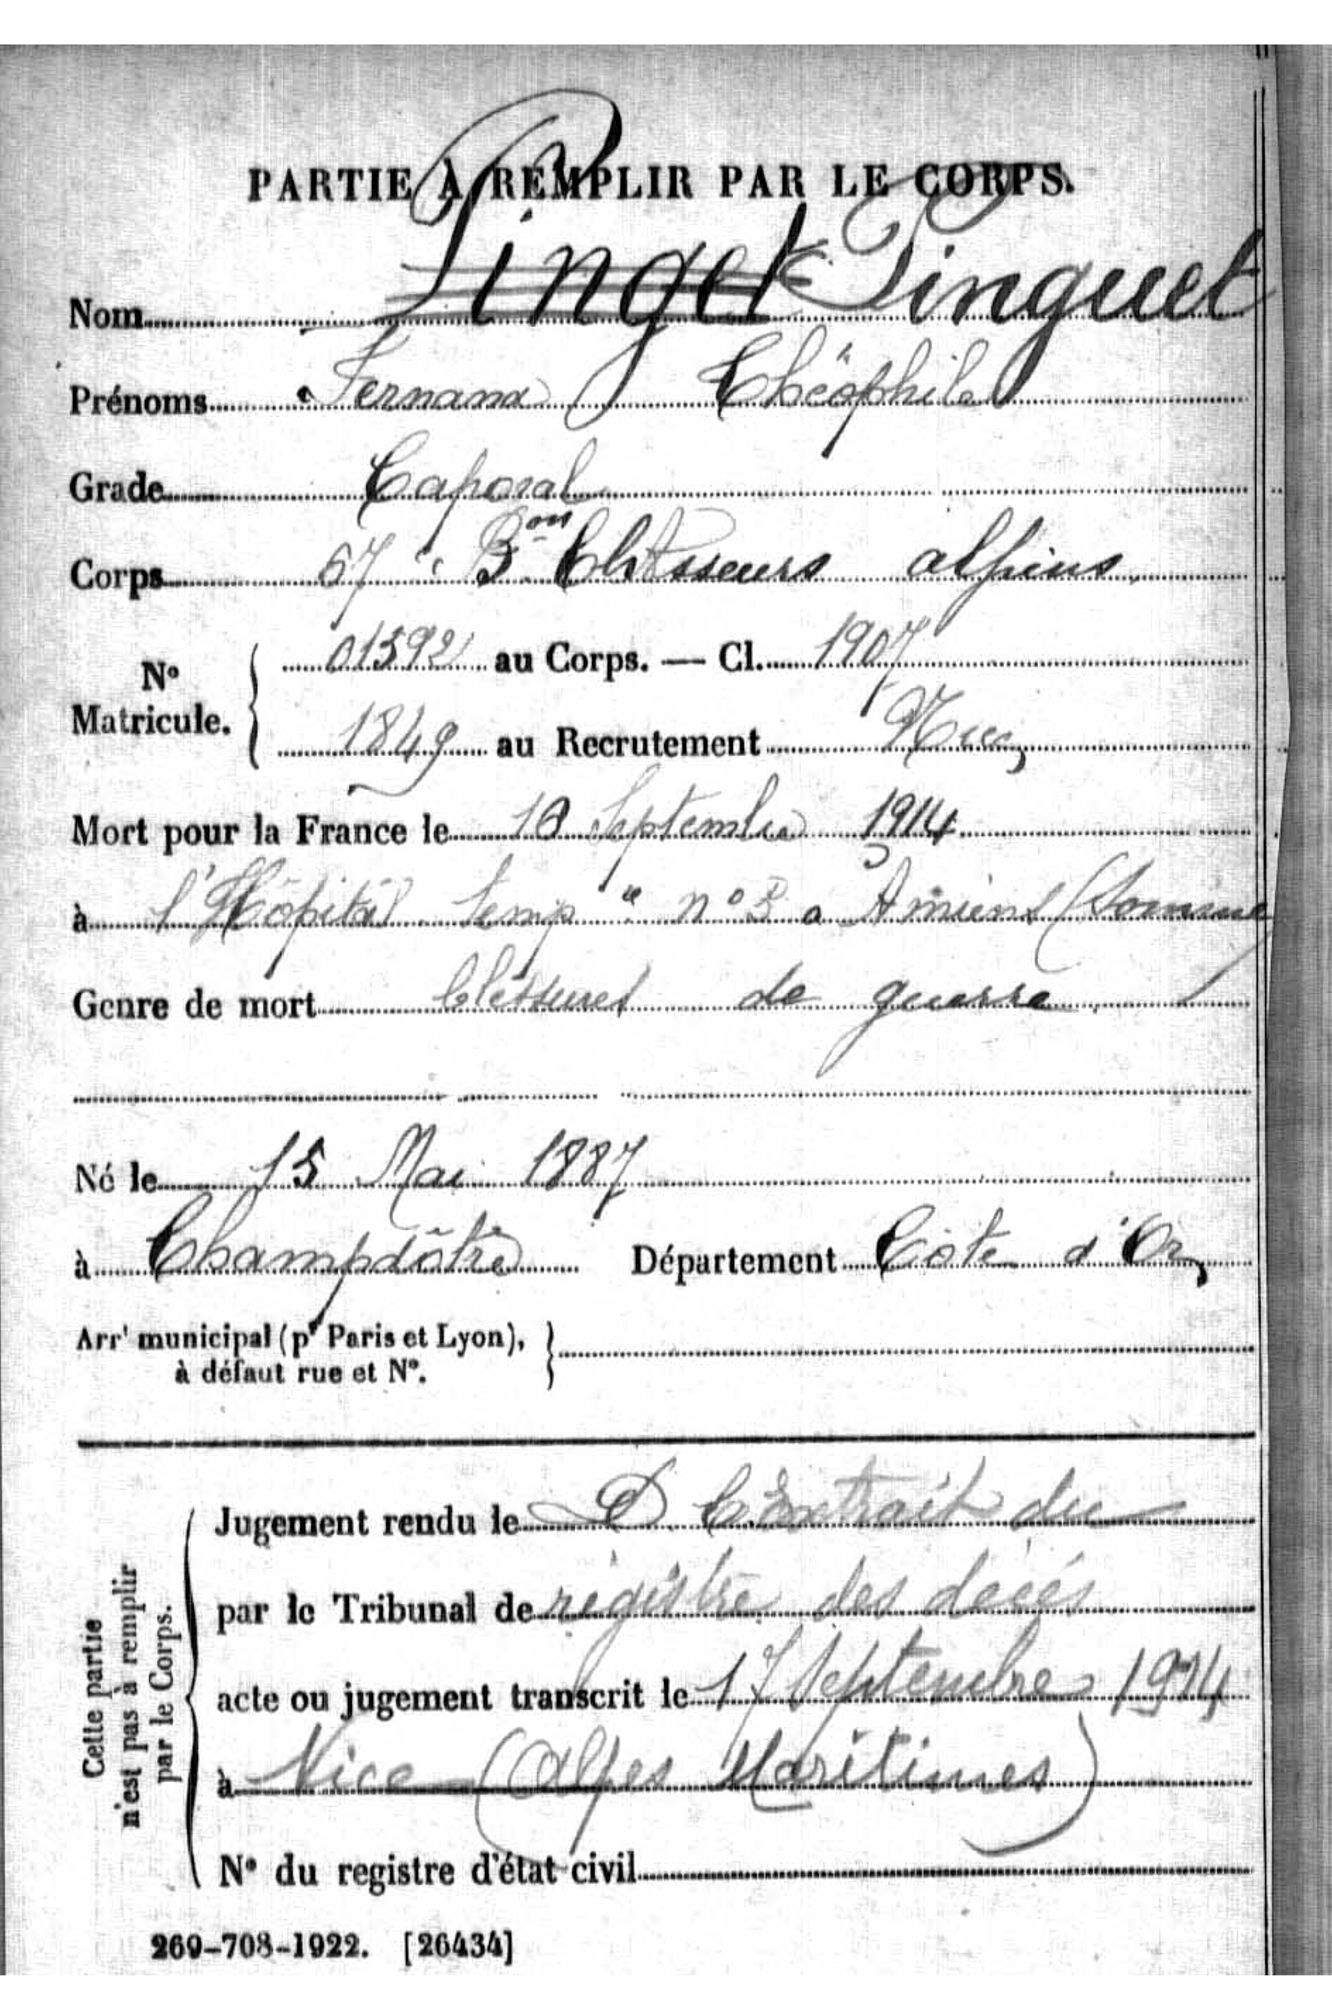 PARTIE À REMPLIR PAR LE CORPS.
Nom Pinget Pinguet
Prénoms Fernand Théophile
Grade Caporal
Corps 67e Bon Chasseurs alpins.
No Matricule. { 01392 au Corps. — Cl. 1907
1849 au Recrutement Nice
Mort pour la France le 10 Septembre 1914
à l'Hôpital Temp re no 3 a Amiens (Somme
Genre de mort blessures de guerre
Né le 15 Mai 1887
à Champdôtre Département Côte d'Or
Arrt municipal (pr Paris et Lyon), à défaut rue et N°. }
Cette partie n'est pas à remplir par le Corps.
Jugement rendu le Extrait du
par le Tribunal de registre des décés
acte ou jugement transcrit le 17 Septembre 1914
à Nice (Alpes Maritimes)
N° du registre d'état civil
269-708-1922. [26434]